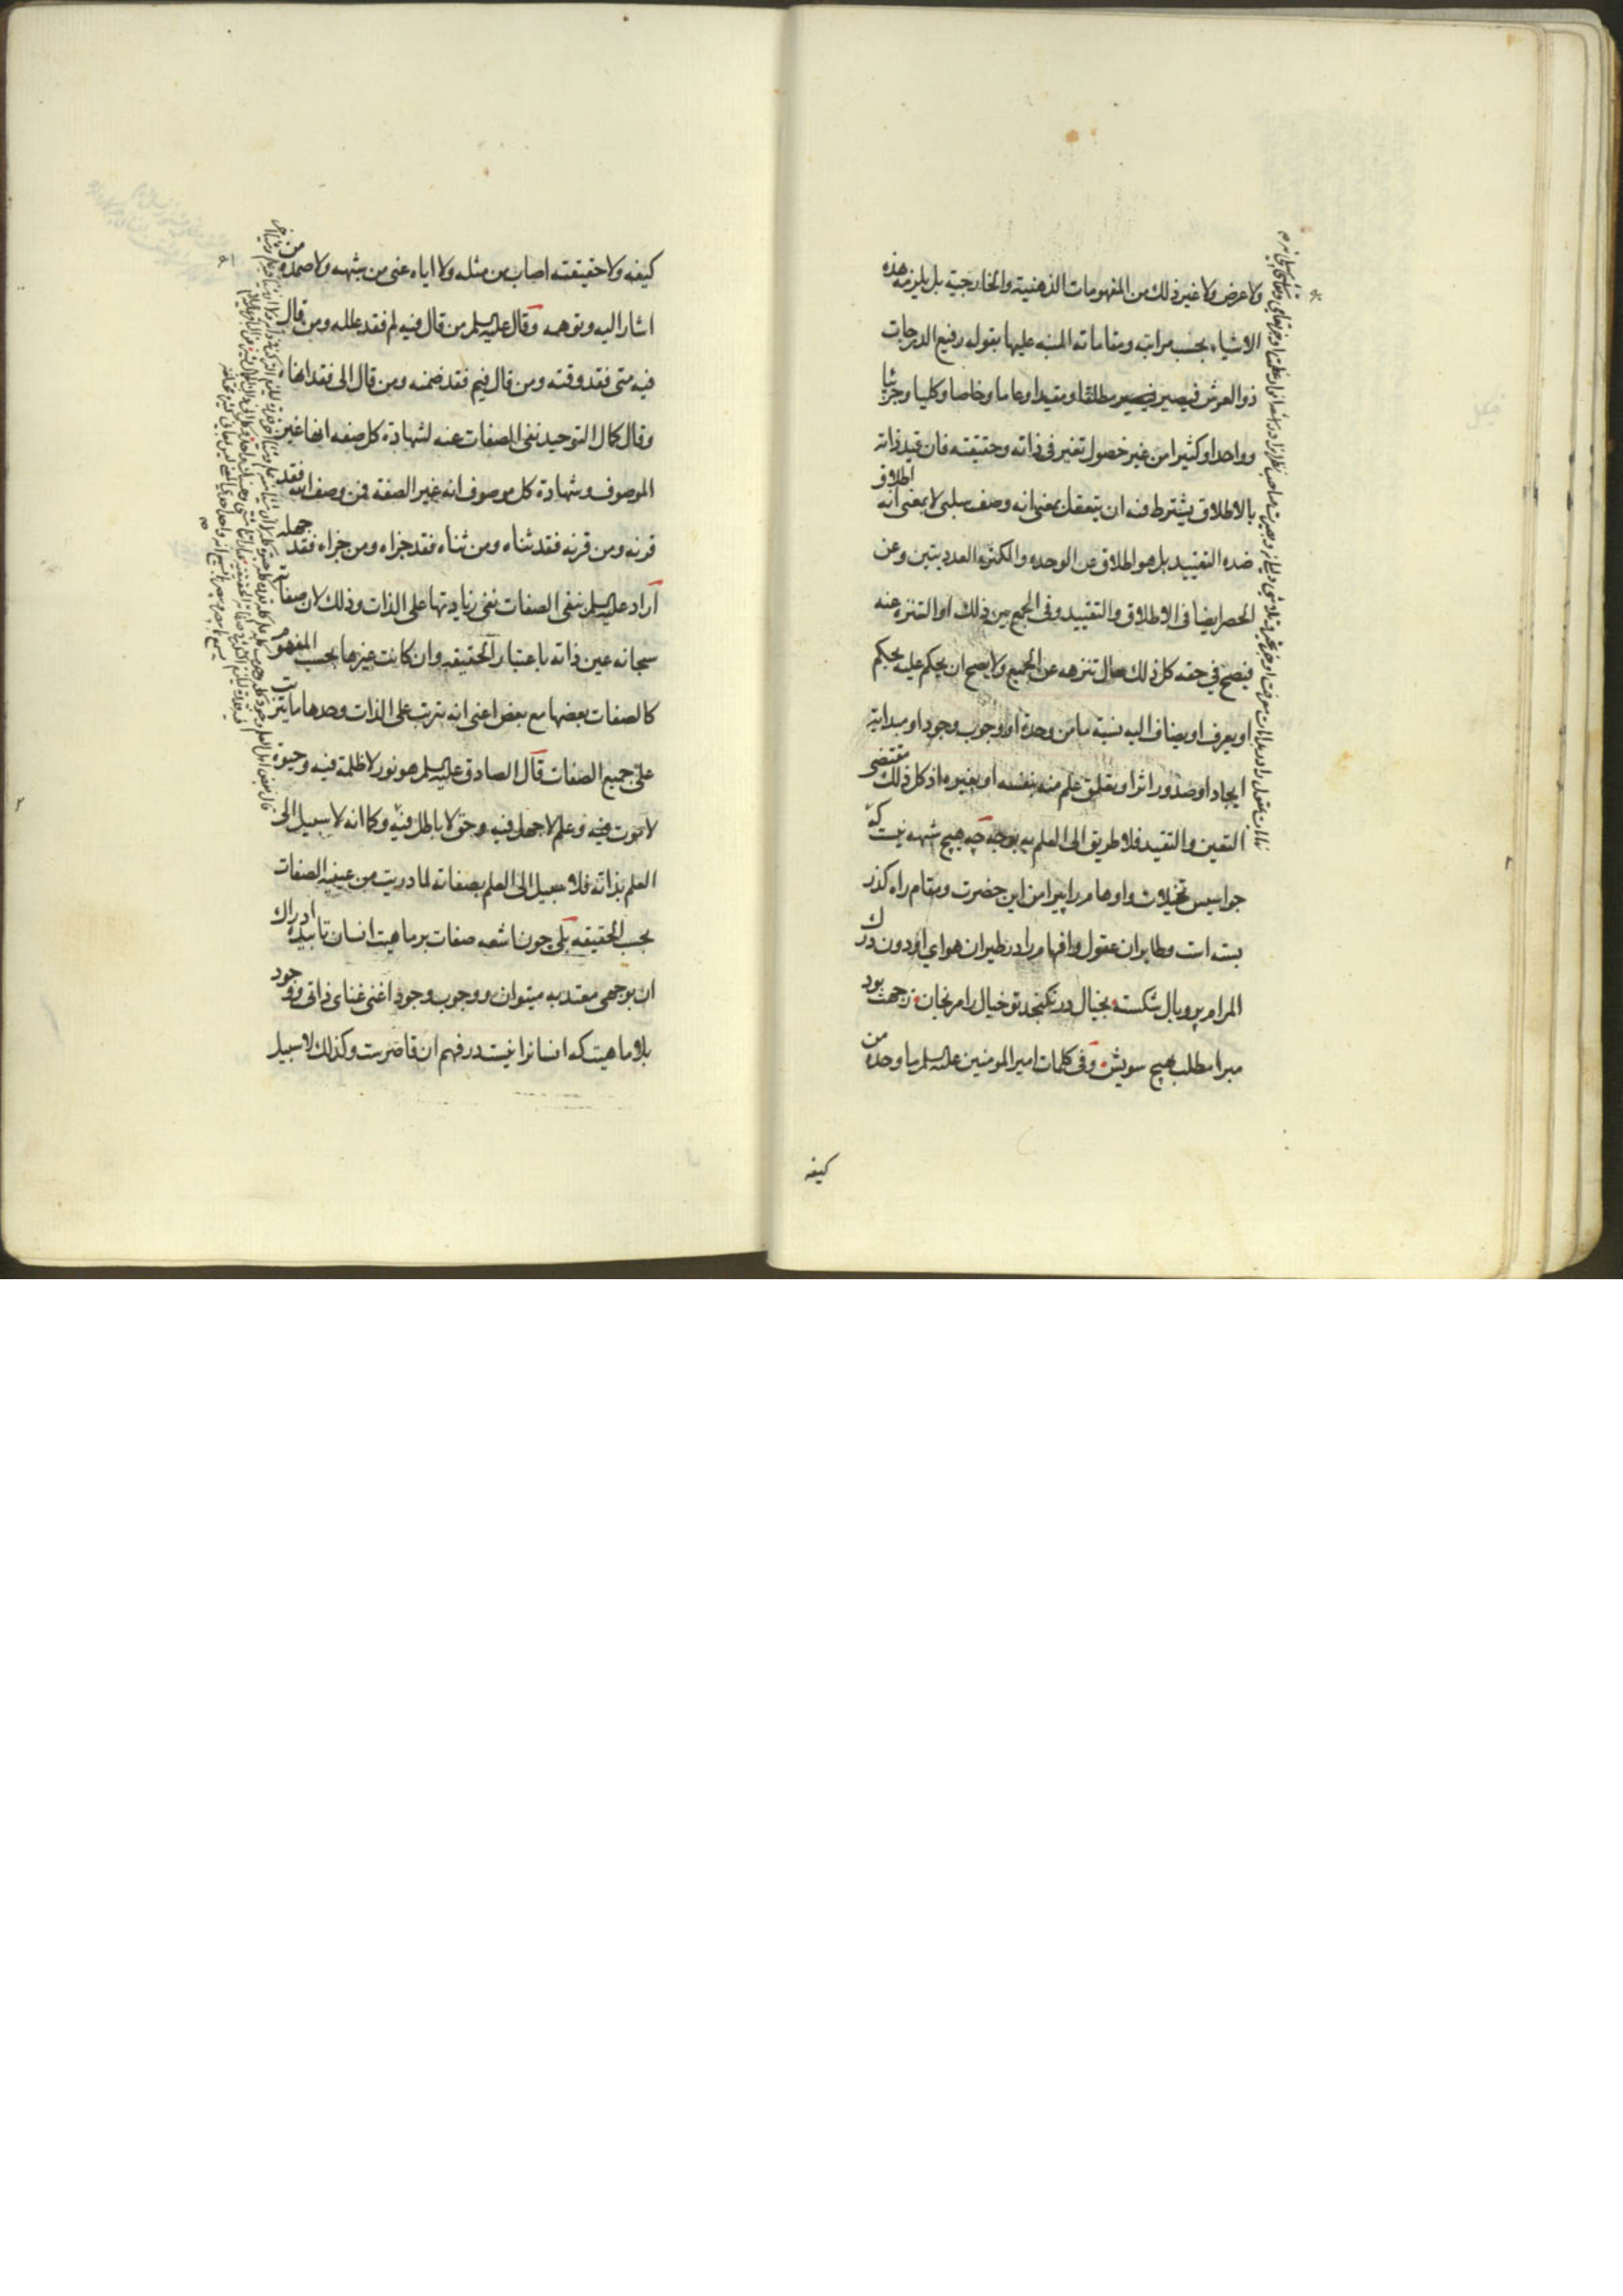 ولا عرض ولا غير ذلك من المفهومات الذهنية والخارجية بل يلزمه هذه
الاشياء بحسب مراتبه ومقاماته المنبه عليها بقوله رفيع الدرجات
ذو العرش فيصير مطلقا ومقيدا وعاما وخاصا وكليا وجزئيا
وواحدا وكثيرا من غير حصول تغير في ذاته وحقيقته فان قيد ذاته
بالاطلاق يشترط فيه ان يتعقل بمعنى انه وصف سلبي لا بمعنى انه اطلاق
ضده التقييد بل هو اطلاق عن الوحده والكثره العدديتين وعن
الحصر ايضا في الاطلاق والتقييد وفي الجمع بين ذلك او التنزه عنه
فيصح في حقه كل ذلك حال تنزهه عن الجميع ولا يصح ان يحكم عليه بحكم
او يعرف او يضاف اليه نسبة ما من وحدة او وجوب وجود او مبدائية
ايجاد او صدور اثر او تعلق علم منه بنفسه او بغيره اذ كل ذلك مقتضى
التعين والتقيد فلا طريق الى العلم به بوجه چه هيچ شبهه نيست كه
جواسيس تخيلات واوهام را پيرامن اين حضرت ومقام راه كذر
بسته است وطايران عقول وافهام را در طيران هواي او دون درك
المرام پر وبال شكسته بخيال در نكنجد تو خيال را مرنجان ز جهت بود
مبرا مطلب بهيچ سويش وفي كلمات امير المومنين عليه السلم ما وحده من
كيفه
كيفه ولا حقيقته اصاب من مثله ولا اياه عنى من شبهه ولا صمده من
اشار اليه وتوهمه وقال عليه السلم من قال فيه لم فقد علله ومن قال
فيه متى فقد وقته ومن قال فيم فقد ضمنه ومن قال الى فقد انهاه
وقال كمال التوحيد نفى الصفات عنه لشهادة كل صفه انها غير
الموصوف وشهادة كل موصوف انه غير الصفه فمن وصف الله فقد
قرنه ومن قرنه فقد ثناه ومن ثناه فقد جزاه ومن جزاه فقد جهله
اراد عليه السلم بنفى الصفات نفى زيادتها على الذات وذلك لان صفاته
سبحانه عين ذاته باعتبار الحقيقه وان كانت غيرها بحسب المفهوم
كالصفات بعضها مع بعض اعنى انه يترتب على الذات وحدها ما يترتب
على جميع الصفات قال الصادق عليه السلم هو نور لا ظلمة فيه وحيوة
لا موت فيه وعلم لا جهل فيه وحق لا باطل فيه وكما انه لا سبيل الى
العلم بذاته فلا سبيل الى العلم بصفاته لما دريت من عينيه الصفات
بحسب الحقيقه بلى چون اشعه صفات بر ماهيت انسان تابيده ادراك
ان بوجهى معتد به ميتوان ووجوب وجود اعنى غناى ذاتى ووجود
بلا ماهيت كه انسانرا نيست در فهم ان قاصرست وكذلك لا سبيل